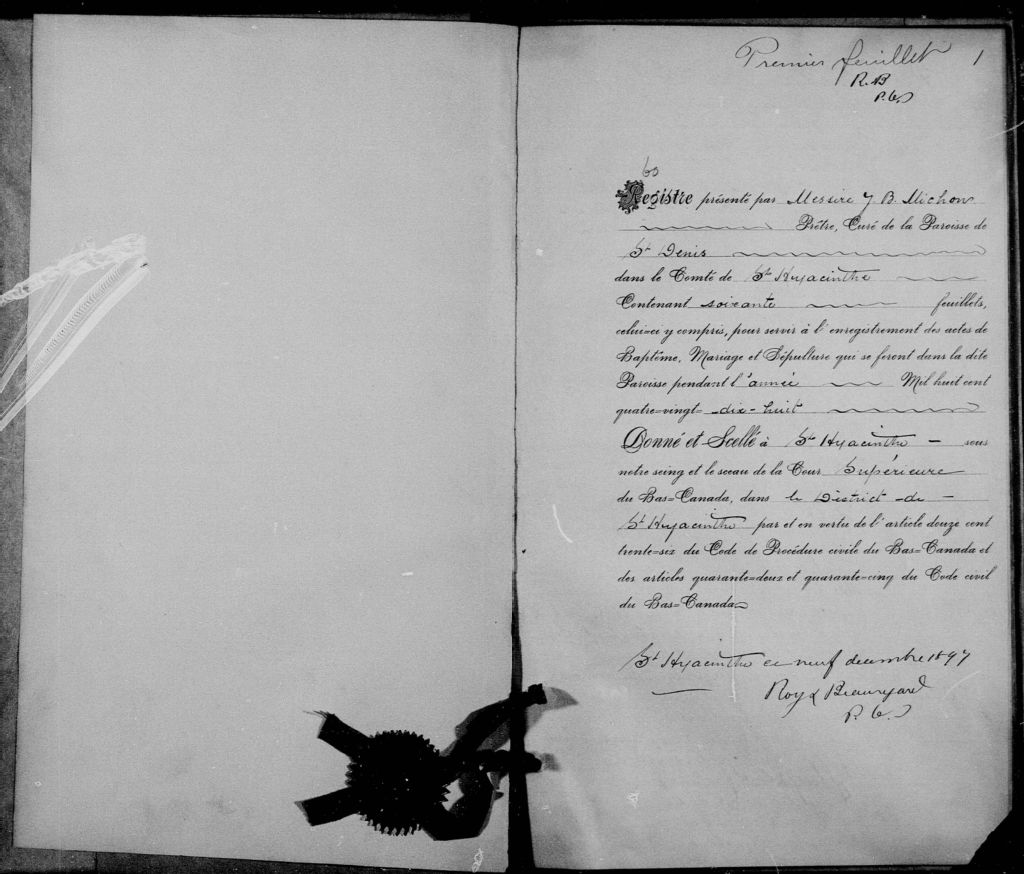 Premier feuillet 1
R. B
P. C. S
60
Registre présenté par Messire J. B. Michon
Prêtre, Curé de la Paroisse de
St Denis
dans le Comté de St Hyacinthe
Contenant soixante feuillets,
celui=ci y compris, pour servir à l'enregistrement des actes de
Baptême, Mariage et Sépulture qui se feront dans la dite
Paroisse pendant l'année Mil huit cent
quatre=vingt= dix-huit
Donné et Scellé à St Hyacinthe - sous
notre seing et le sceau de la Cour Supérieure
du Bas=Canada, dans le District de -
St Hyacinthe par et en vertu de l'article douze cent
trente=six du Code de Procédure civile du Bas=Canada et
des articles quarante=deux et quarante=cinq du Code civil
du Bas=Canada
St Hyacinthe ce neuf décembre 1897
Roy & Beauregard
P. C. S